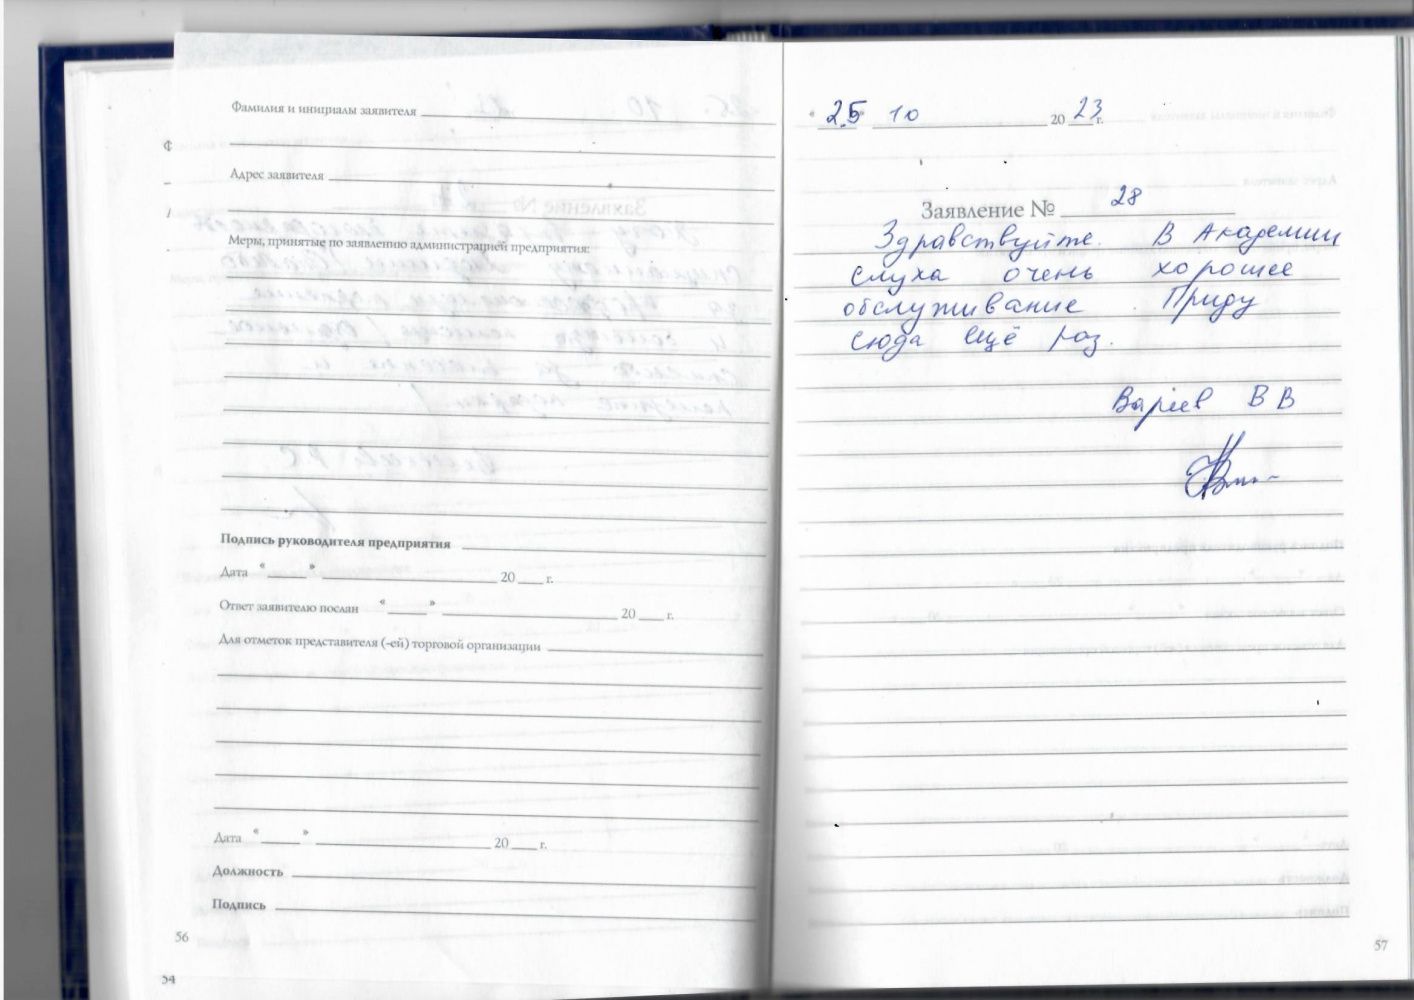 Фамилия и инициалы заявителя
Адрес заявителя
Меры, принятые по заявлению администрацией предприятия:
Подпись руководителя предприятия
Дата « » 20 г.
Ответ заявителю послан « » 20 г.
Для отметок представителя (-ей) торговой организации
Дата « » 20 г.
Должность
Подпись
56
54
« 25 » 10 20 23 г.
Заявление № 28
Здравствуйте. В Академии
слуха очень хорошее
обслуживание. Приду
сюда ещё раз.
В В
57